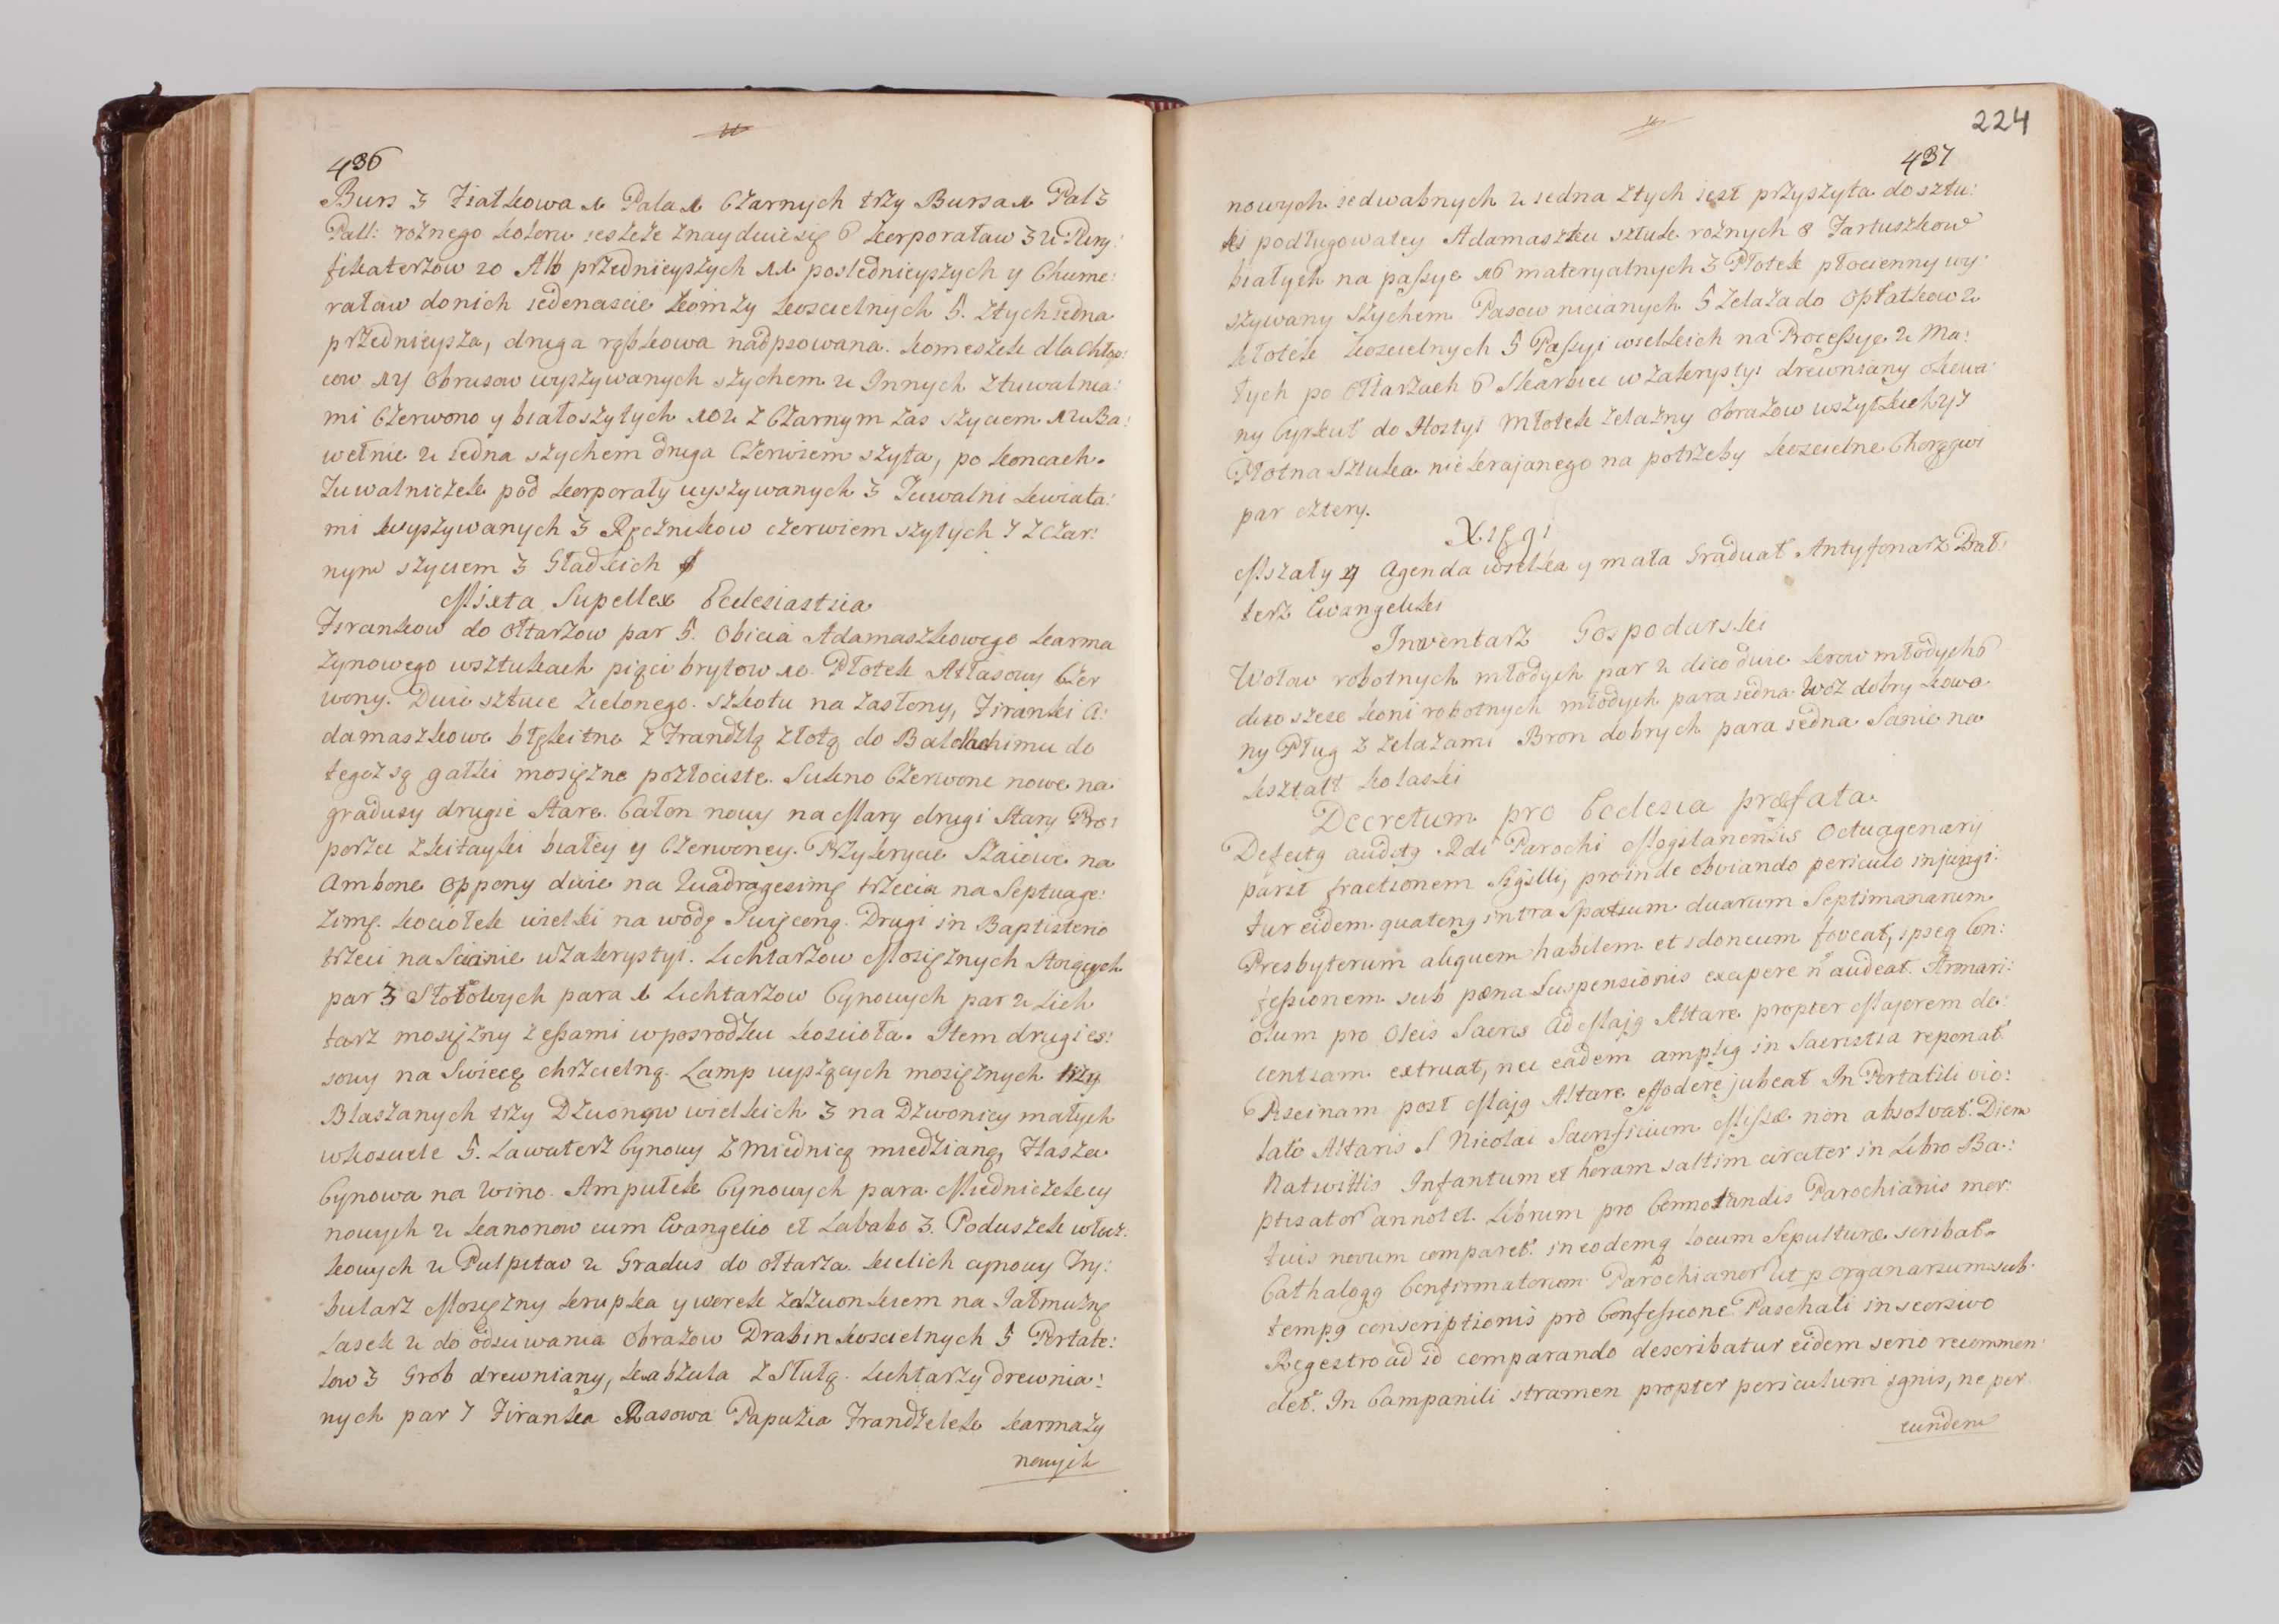 436
Burs 3 Fiałkowa 1 Pala 1 Czarnych trzy Bursa 1 Pal 3
Pall: rożnego koloru ieszcze znayduie się 6 korporałow 32 Pury:
fikaterzow 20 Alb przednieyszych 11 poslednieyszych y Chume:
rałow do nich iedenascie komży koscielnych 5. z tych iedna
przednieysza, druga rąbkowa nadpsowana. komeszek dla Chłop:
cow 14 Obrusow wyszywanych szychem 2 Innych z tuwalnia:
mi Czerwono y białoszytych 102 z Czarnym zas szyciem 12 Ba:
wełnie 2 iedna szychem druga Czerwiem szyta, po koncach.
Tuwalniczek pod korporały wyszywanych 3 Tuwalni kwiata:
mi wyszywanych 3 Ręcznikow czerwiem szytych 7 z Czar:
nym szyciem 3 Gładkich
Mixta Supellex Ecclesiastica
Firankow do Ołtarzow par 5. Obicia Adamaszkowego karma
zynowego w sztukach pięci brytow 10. Płotek Atłasowy Czer
wony. Dwie sztuce zielonego. szkotu na zasłony, Firanki A:
damaszkowe błękitne z Frandzlą złotą do Baldachimu do
tegoż są gałki mosiężne pozłociste. Sukno Czerwone nowe na
gradusy drugie stare. Całon nowy na Mary drugi stary Pro:
porzec z kitayki białey y Czerwoney. Przykrycie Szaiowe na
Ambone Oppony dwie na Quadragesimę trzecia na Septuage:
zimę. kociołek wielki na wodę Swięconą. Drugi in Baptisterio
trzeci na Scianie w zakrystyi. Lichtarzow Mosiężnych stoiących
par 3 Stołowych para 1 Lichtarzow Cynowych par 2 Lich
tarz mosiężny z essami w posrodku kosciola. Item drugi es:
sowy na Swiecę chrzcielną. Lamp wyszących mosiężnych trzy
Blaszanych trzy Dzwonow wielkich 3 na Dzwonicy małych
w kosciele 5. Lawaterz Cynowy z Miednicą miedzianą, Flasza
Cynowa na wino. Ampułek Cynowych para Miedniczek cy
nowych 2 kanonow cum Evangelio et Lababo 3. Poduszek włocz:
kowych 2 Pulpitow 2 Gradus do ołtarza. kielich cynowy Try:
bularz Mosiężny krupka y worek z dzwonkiem na Iałmużnę
Lasek 2 do odsuwania Obrazow Drabin koscielnych 5 Portate:
low 3 Grob drewniany, kabzula z Stulą. Lichtarzy drewnia:
nych par 7 Firanka Rasowa Papuzia Frandzelek karmazy
nowych
224
437
nowych iedwabnych 2 iedna z tych iest przyszyta do sztu:
ki podługowatey Adamaszku sztuk rożnych 8 Fartuszkow
białych na passye 16 materyalnych 3 Płotek płocienny wy:
szywany Szychem Pasow nicianych 5 żelaza do Opłatkow 2
kłotek koscielnych 5 Passyi wielkich na Processye 2 Ma:
łych po Ołtarzach 6 Skarbiec w zakrystyi drewniany okowa:
ny Cyrkuł do Hostyi Młotek żelazny Obrazow wszytkich 27
Płotna Sztuka nie krajanego na potrzeby koscielne Chorągwi
par cztery.
Xięgi
Mszały 4 Agenda wielka y mała Graduał Antyfonarz Psał:
terz Ewangeliki
Inwentarz Gospodarski
Wołow robotnych młodych par 2 dico dwie krow młodych 6
dico szesc koni robotnych młodych para iedna. Woz dobry kowa
ny Pług z żelazami Bron dobrych para iedna Sanie na
kształt kolaski
Decretum pro Ecclesia præfata.
Defectq auditq Rdi Parochi Mogilanensis Octuagenarij
parit fractionem Sigilli, proinde obviando periculo injungi:
tur eidem quatenq intra spatium duarum Septimanarum
Presbyterum aliquem habilem et idoneum foveat, ipseq Con:
fessionem sub pæna Suspensionis excipere n audeat. Armari:
olum pro Oleis Sacris ad Majq Altare propter Majorem de:
centiam extruat, nec eadem ampliq in Sacristia reponat
Piscinam post Majq Altare effodere jubeat In Portatili vio:
lato Altaris S Nicolai Sacrificium Missæ non absolvat. Diem
Nativitis Infantum et horam saltim circiter in Libro Ba:
ptisator annotet. Librum pro Connotandis Parochianis mor:
tuis novum comparet. in eodemq locum Sepulturæ scribat.
Cathalogq Confirmatorum Parochianor ut p Organarium sub
tempq conscriptionis pro Confessione Paschali in seorsivo
Regestro ad id comparando describatur eidem serio recommen:
det. In Campanili stramen propter periculum ignis, ne per
eundem